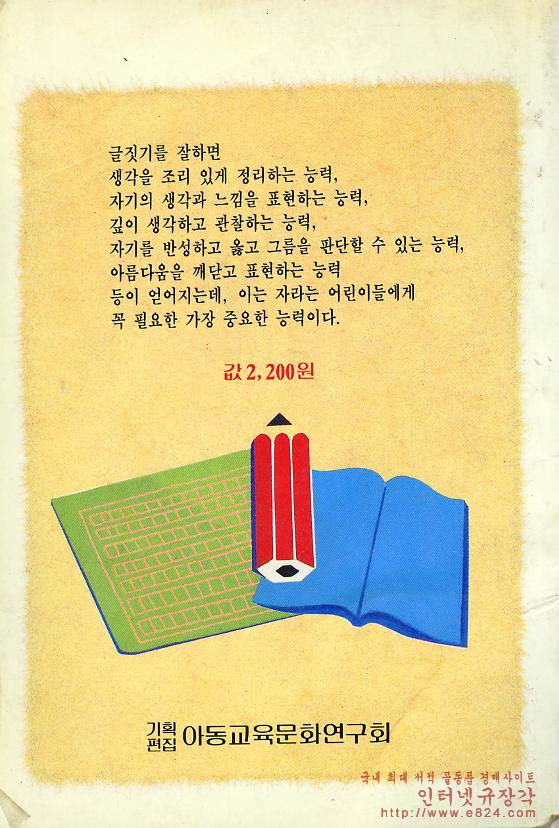 글짓기를 잘하면
생각을 조리 있게 정리하는 능력,
자기의 생각과 느낌을 표현하는 능력,
깊이 생각하고 관찰하는 능력,
자기를 반성하고 옳고 그름을 판단할 수 있는 능력,
아름다움을 깨닫고 표현하는 능력
등이 얻어지는데, 이는 자라는 어린이들에게
꼭 필요한 가장 중요한 능력이다.
값 2,200원
기획
편집 아동교육문화연구회
국내 최대 서적 골동품 경매사이트
인터넷규장각
http://www.e824.com